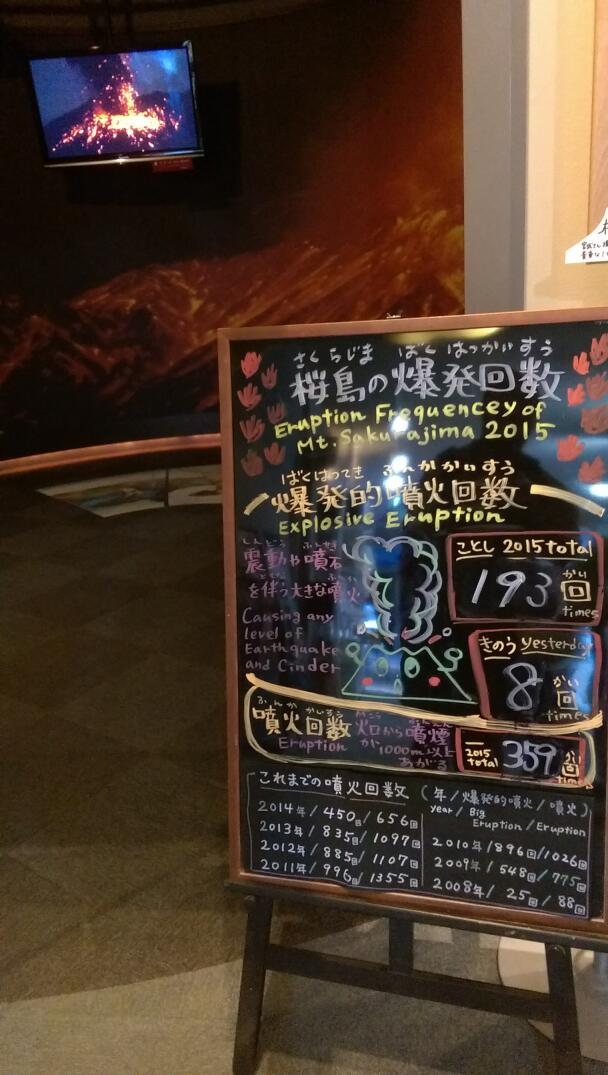 さくらじま ばくはつかいすう
桜島の爆発回数
Eruption Frequencey of
Mt. Sakurajima 2015
ばくはつてき ふんかかいすう
爆発的噴火回数
Explosive Eruption
しんどう ふんせき
震動や噴石
ともな ふんか
を伴う大きな噴火
Causing any
level of
Earthquake
and Cinder
ことし 2015 total
193 かい
回
times
きのう yesterday
8 かい
回
times
ふんかかいすう
噴火回数
Eruption
かこう ふんえん
火口から噴煙
が1000m以上
あがる
2015
total
359
回
times
これまでの噴火回数 (年/爆発的噴火/噴火)
year / Big
Eruption / Eruption
2014年/450回/656回
2013年/835回/1097回
2012年/885回/1107回
2011年/996回/1355回
2010年/896回/1026回
2009年/548回/775回
2008年/25回/88回